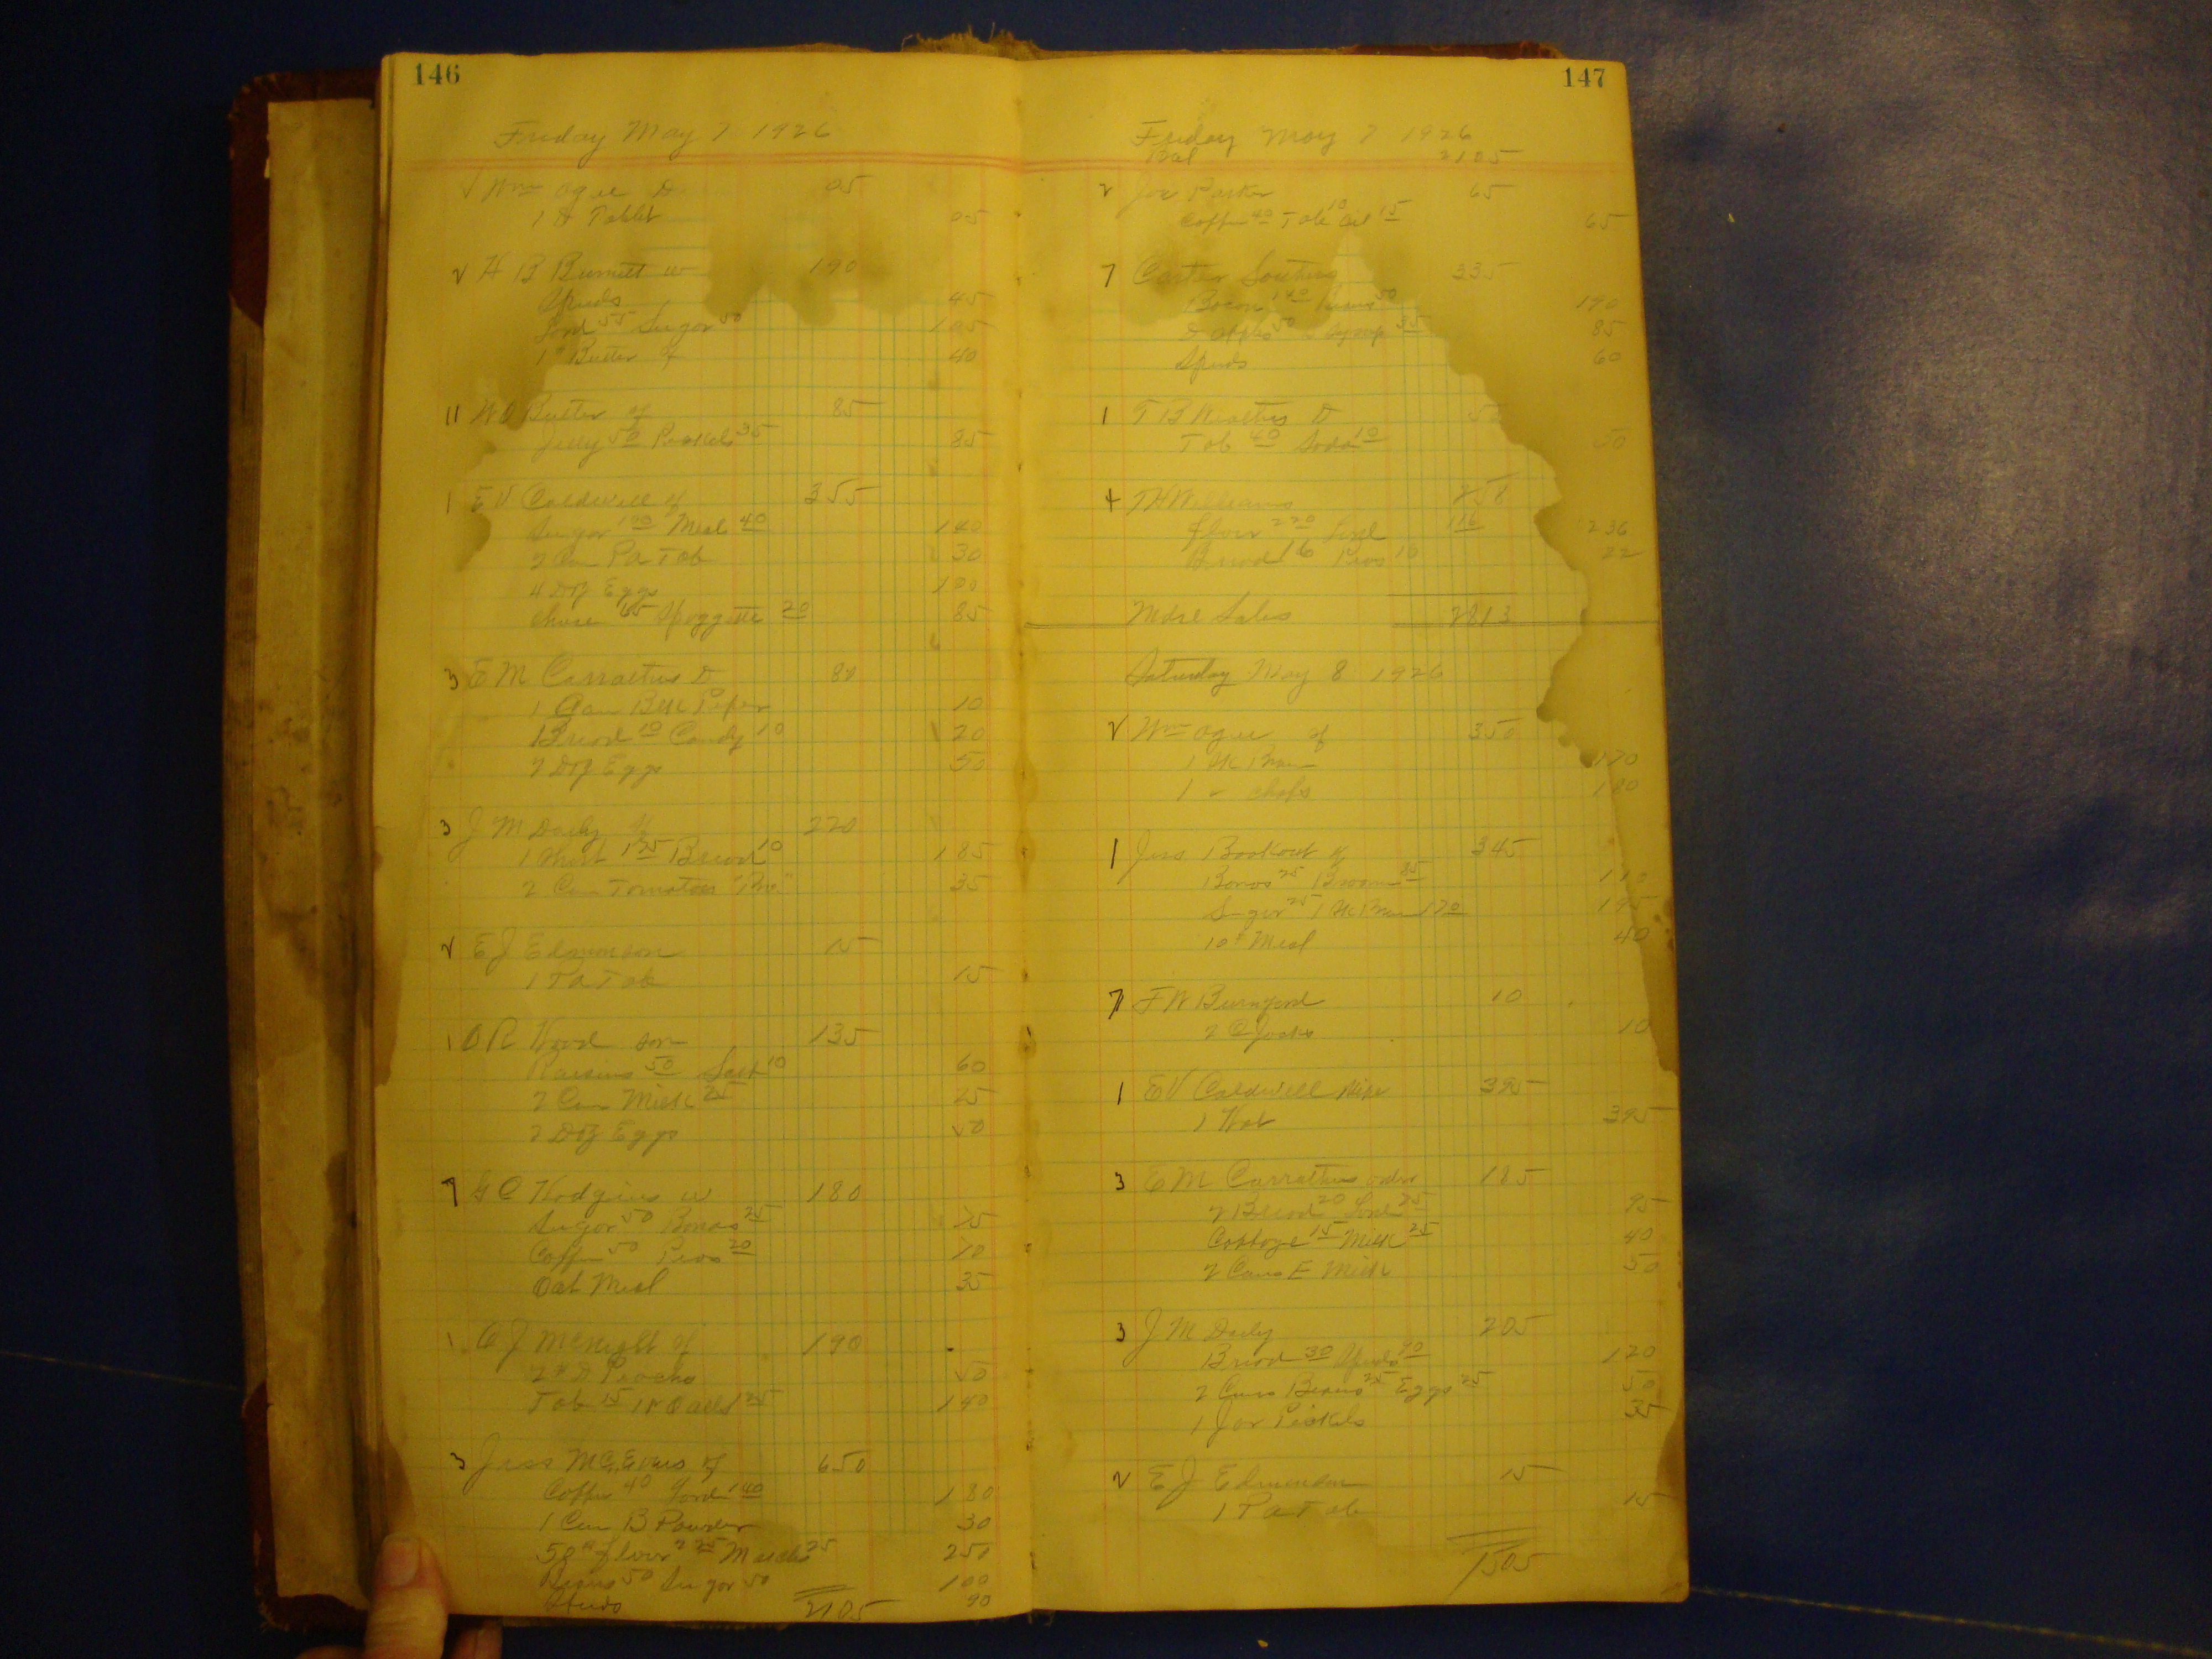 146
Friday May 7 1926
Wm Agee D 05
1 H Tablet 05
2 H B Burnett w 190
Spuds 45
Lard 55 Sugar 50 105
1# Butter 40
11 W O Butler 85
Jelly 50 Pickels 35 85
1 E V Caldwell 355
Sugar 100 Meal 40 140
2 Can P A Tob 30
4 Doz Eggs 120
cheese 65 Spoggette 20 85
3 E M Carrathus D 80
1 Can Blk Peper 10
Bread 10 Candy 10 20
2 Doz Eggs 50
3 J M Daily 220
1 Shirt 175 Bread 10 185
2 Can Tomatoes 35
2 E J Edmonson 15
1 P A Tob 15
1 O R Wood son 135
Raisins 50 Salt 10 60
2 Cans Milk 25 25
2 Doz Eggs 50
7 G C Hodgins w 180
Sugar 50 Beans 25 75
Coffee 50 Peas 20 70
Oat Meal 35
1 C J McKnight 190
2# D Peaches 50
Tob 15 1 Pr Oalls 125 140
3 Jess 650
Coffee 40 Lard 140 180
1 Can B Powder 30
50# flour 225 Matches 25 250
Beans 50 Sugar 50 100
Spuds 90
2105
147
Friday May 7 1926
Bal 2105
2 Joe Parker 65
Coffee 40 Tob 10 Oil 15 65
7 Carter 335
Bacon 140 Beans 50 190
D apples 50 Syrup 35 85
Spuds 60
1 T B D
Tob 40 Soda 10 50
4 T H Williams
flour 220 Lard 116 236
Bread Peas 10 22
Mdse Sales 2813
Saturday May 8 1926
2 Wm Agee 350
1 Sk Bran 170
1 " chops 180
1 Jess Bookout 345
Beans 25 Broom 85 110
Sugar 25 1 Sk Bran 170 195
10# Meal 40
7 F W Bumgard 10
2 C Jacks 10
1 E V Caldwell wife 395
1 Hat 395
3 E M Carrathus 185
2 Bread 20 95
Cabbage 15 Milk 25 40
2 Cans E Milk 50
3 J M Daily 205
Bread 30 Spuds 90 120
2 Cans Beans 25 Eggs 25 50
1 Jar Pickels 35
2 E J Edmonson 15
1 P A Tob 15
1505